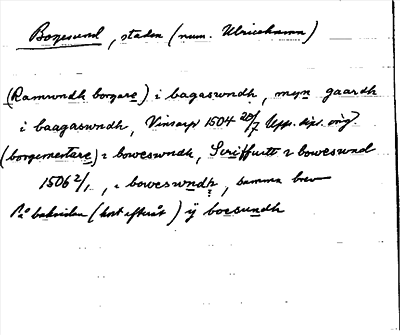 Bogesund, staden (num. Ulricehamn)
(Ramundh borgare) i bagaswndh, myn gaardh
i baagaswndh, Vinsarp 1504 20/7 Upps. dipl. orig.
(borgemestare) i boweswndh, Scriffuit i boweswnd
1506 2/1, i boweswndh, samma brev
På baksidan (kort efteråt) ij boesundh